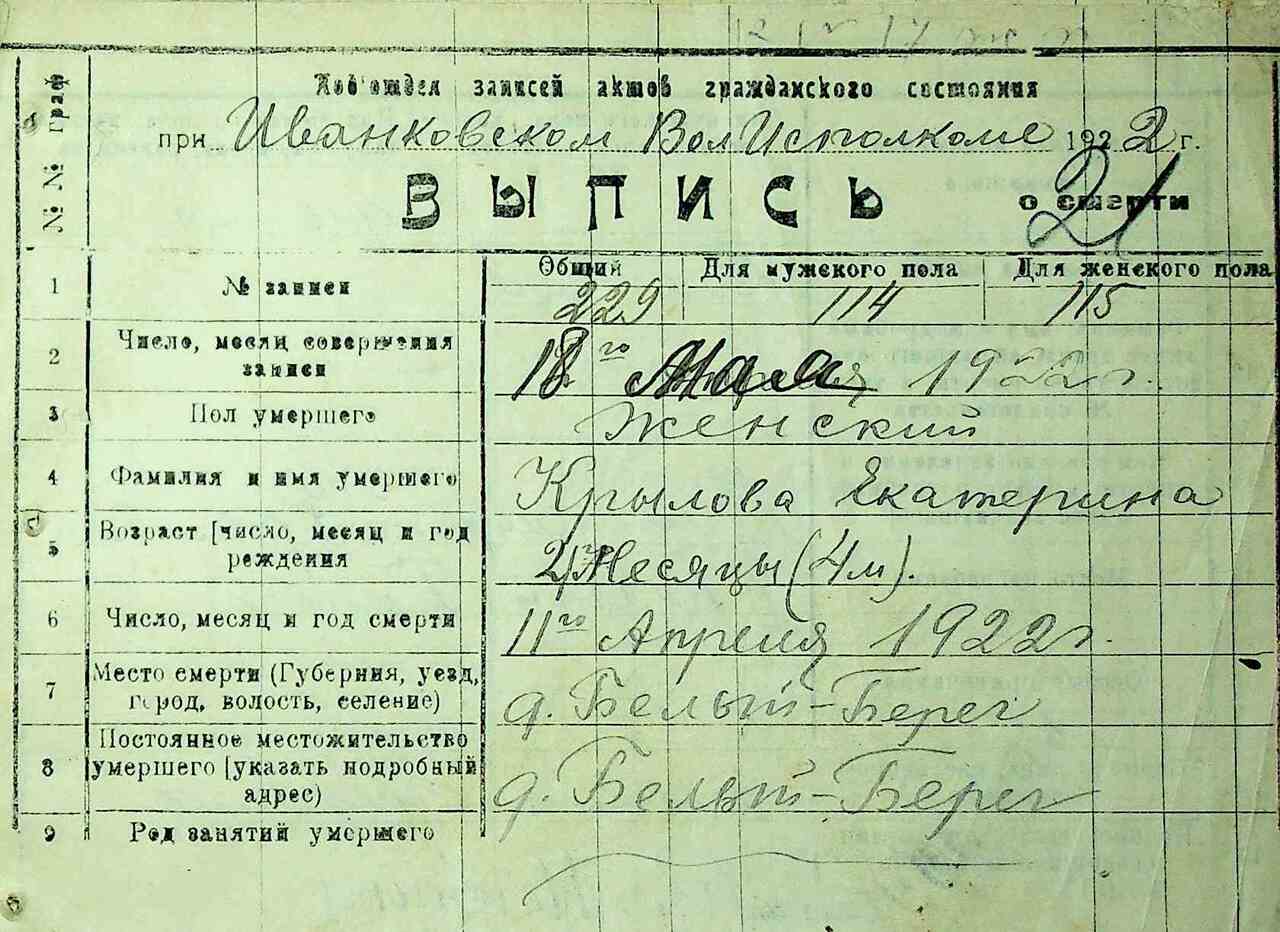 Под'отдел записей актов гражданского состояния
при Иванковском ВолИсполкоме 1922 г.
ВЫПИСЬ о смерти
21
№№ граф
Общий Для мужского пола Для женского пола
1 № записи 229 114 115
2 Число, месяц совершения записи 18го Мая 1922г.
3 Пол умершего Женский
4 Фамилия и имя умершего Крылова Екатерина
5 Возраст [число, месяц и год
рождения Месяцы (4 м).
6 Число, месяц и год смерти 11го Апреля 1922г.
7 Место смерти (Губерния, уезд,
город, волость, селение) д. Белый-Берег
8 Постоянное местожительство
умершего [указать подробный
адрес) д. Белый-Берег
9 Род занятий умершего